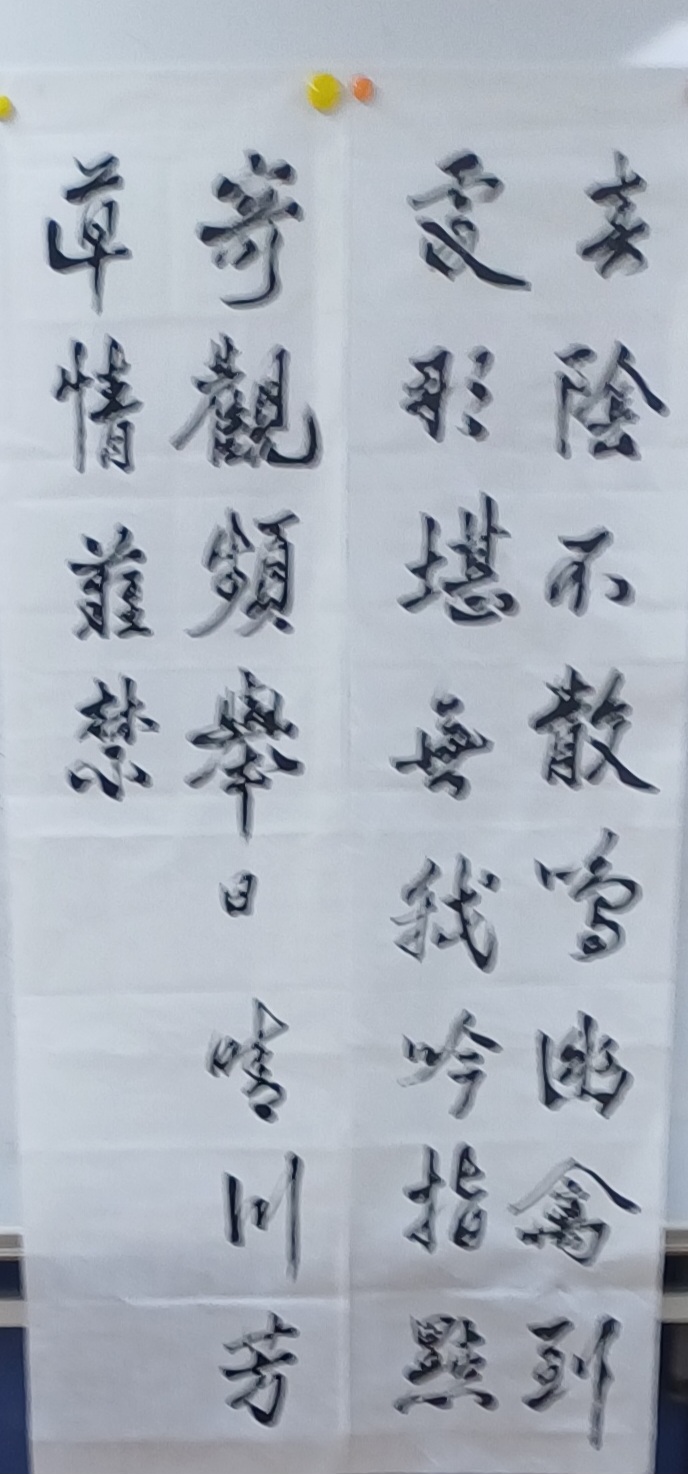 春陰不散鳴幽禽到
處形堪無我吟指點
奇觀頻舉目晴川芳
草情難禁